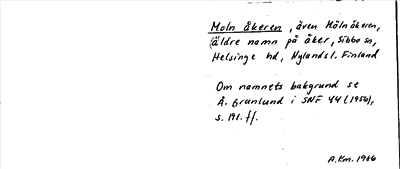 Moln åkeren, även Mölnåkeren,
(äldre namn på åker, Sibbo sn,
Helsinge hd, Nylands l. Finland
Om namnets bakgrund se
Å. Granlund i SNF 44 (1956),
s. 191. ff.
A.Km. 1966